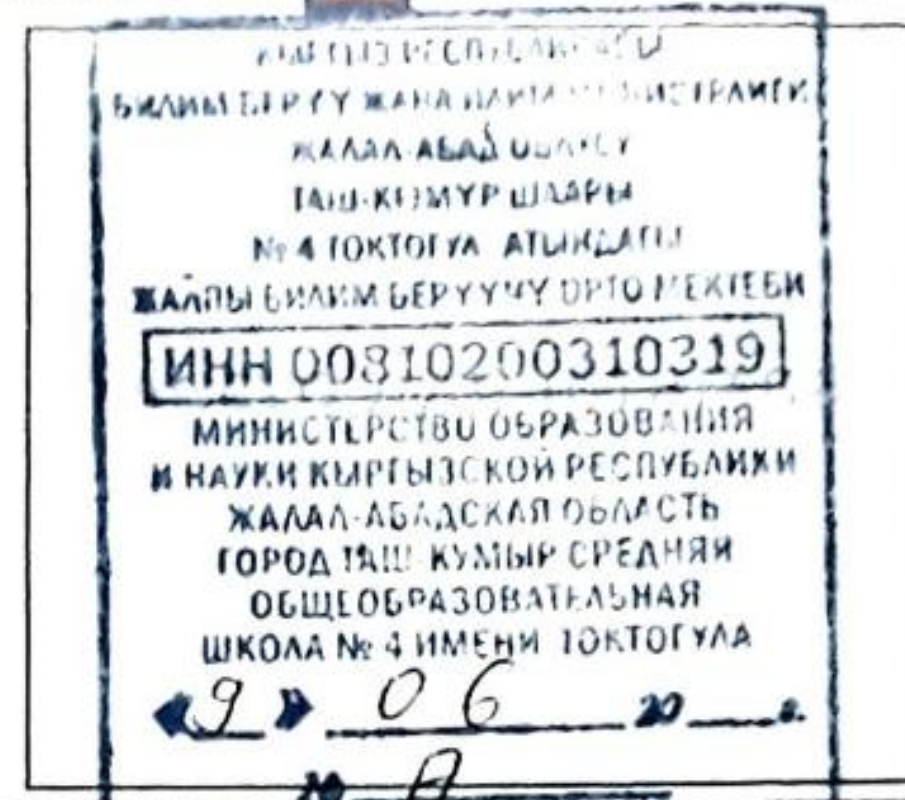 КЫРГЫЗ РЕСПУБЛИКАСЫ
БИЛИМ БЕРҮҮ ЖАНА ИЛИМ МИНИСТРЛИГИ
ЖАЛАЛ-АБАД ОБЛАСУ
ТАШ-КӨМҮР ШААРЫ
№ 4 ТОКТОГУЛ АТЫНДАГЫ
ЖАЛПЫ БИЛИМ БЕРҮҮЧҮ ОРТО МЕКТЕБИ
ИНН 00810200310319
МИНИСТЕРСТВО ОБРАЗОВАНИЯ
И НАУКИ КЫРГЫЗСКОЙ РЕСПУБЛИКИ
ЖАЛАЛ-АБАДСКАЯ ОБЛАСТЬ
ГОРОД ТАШ-КУМЫР СРЕДНЯЯ
ОБЩЕОБРАЗОВАТЕЛЬНАЯ
ШКОЛА № 4 ИМЕНИ ТОКТОГУЛА
«9» 06 20 г.
№